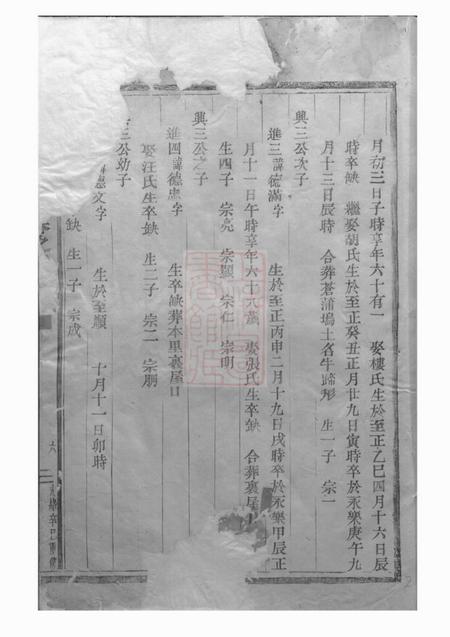 月初三日子時享年六十有一 娶樓氏生於至正乙巳四月十六日辰
時卒缺 繼娶胡氏生於至正癸丑正月廿九日寅時卒於永樂庚午九
月十三日辰時 合葬蒼蒲塢土名牛蹄形 生一子 宗一
興三公次子
進三諱德滿字 生於至正丙申二月十九日戌時卒於永樂甲辰正
月十一日午時享年六十九歲 娶張氏生卒缺 合葬裏屋
生四子 宗亮 宗顯 宗仁 宗明
興三公之子
進四諱德忠字 生卒缺葬本里裏屋口
娶汪氏生卒缺 生二子 宗二 宗朋
三公幼子
文字 生於至順 十月十一日卯時
缺 生一子 宗成
六